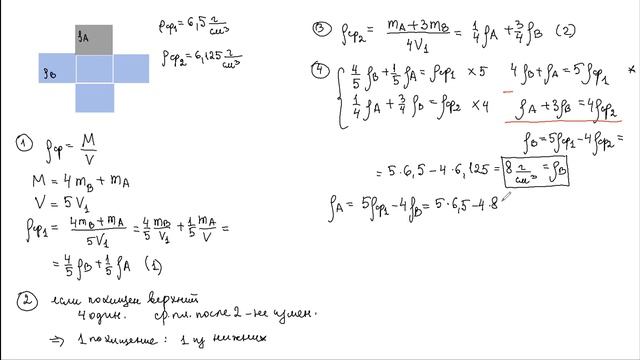 ρA
ρB
ρср1 = 6,5 г/см³
ρср2 = 6,125 г/см³
① ρср = M/V
M = 4mB + mA
V = 5V1
ρср1 = (4mB + mA)/5V1 = 4/5 mB/V1 + 1/5 mA/V =
= 4/5 ρB + 1/5 ρA (1)
② если похищен верхний
4 один. ср.пл. после 2-не измен.
⇒ 1 похищение: 1 из нижних
③ ρср2 = (mA + 3mB)/4V1 = 1/4 ρA + 3/4 ρB (2)
④ { 4/5 ρB + 1/5 ρA = ρср1 ×5 4ρB + ρA = 5ρср1 *
1/4 ρA + 3/4 ρB = ρср2 ×4 - ρA + 3ρB = 4ρср2
ρB = 5ρср1 - 4ρср2 =
= 5·6,5 - 4·6,125 = 8 г/см³ = ρB
ρA = 5ρср1 - 4ρB = 5·6,5 - 4·8